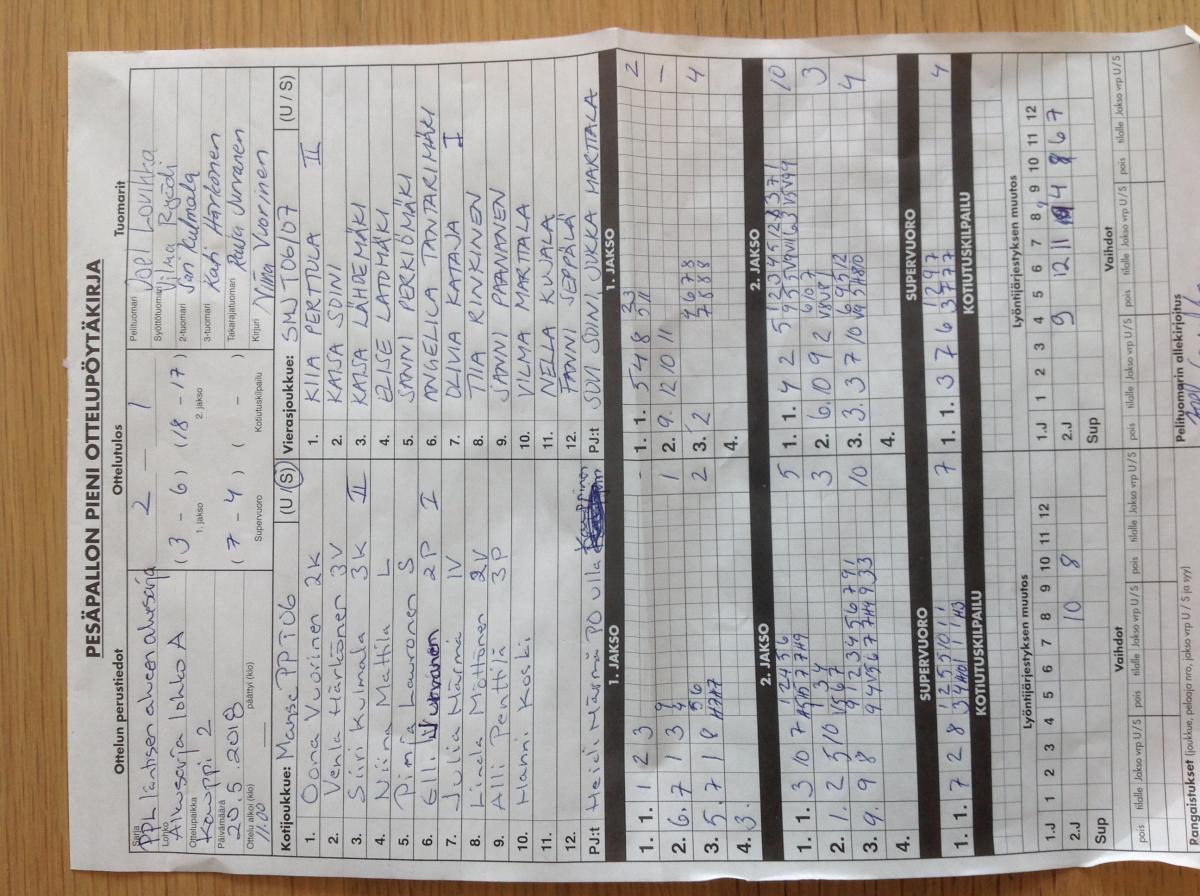 PESÄPALLON PIENI OTTELUPÖYTÄKIRJA
Ottelun perustiedot
Ottelutulos
Tuomarit
Sarja
PPL läntisen alueen aluesarja
Lohko
Alkusarja lohko A
Ottelupaikka
Kauppi 2
Päivämäärä
20.5.2018
Ottelu alkoi (klo)
11.00
päättyi (klo)
2 — 1
(3 - 6) (18 - 17)
1. jakso 2. jakso
(7 - 4) ( - )
Supervuoro Kotiutuskilpailu
Pelituomari Joel Lovikka
Syöttötuomari Vilma Ryödi
2-tuomari Sari Kulmala
3-tuomari Kati Härkönen
Takarajatuomari
Kirjuri Niina Vuorinen
Kotijoukkue: Manse PP T06 (U / S)
1. Oona Vuorinen 2K
2. Venla Härkönen 3V
3. Siiri Kulmala 3K II
4. Niina Mattila L
5. Pimja Lauronen S
6. Elli 2P I
7. Julia Närmä 1V
8. Linda Möttönen 2V
9. Alli Penttilä 3P
10. Hanni Koski
11.
12.
PJ:t Heidi Närmä PO Ulla
Vierasjoukkue: SMJ T06/07 (U / S)
1. KIIA PERTTULA II
2. KAISA SOINI
3. KAISA LÄHDEMÄKI
4. ELISE LATOMÄKI
5. SANNI PERKIÖMÄKI
6. ANGELICA TANTARIMÄKI
7. OLIVIA KATAJA I
8. TIIA RINKINEN
9. JANNI PAANANEN
10. VILMA MARTALA
11. NELLA KUJALA
12. FANNI SEPPÄLÄ
PJ:t SUVI SOINI, JUKKA MARTALA
1. JAKSO
1. 1. 1 2 3 -
2. 6. 7 1 3 1
3. 5. 7 1 8 2
4. 3.
1. JAKSO
1. 1. 5 4 8 2
2. 9. 12 10 11 -
3. 2 4
4.
2. JAKSO
1. 1. 3 10 7 5
2. 1. 2 3
3. 9. 9 8 10
4.
2. JAKSO
1. 1. 4 2 5 10
2. 6. 10 9 2 3
3. 3. 3 7 10 4
4.
SUPERVUORO
1. 1. 7 2 8 7
SUPERVUORO
1. 1. 3 7 6 4
KOTIUTUSKILPAILU
KOTIUTUSKILPAILU
Lyöntijärjestyksen muutos
1 2 3 4 5 6 7 8 9 10 11 12
1.J
2.J 10 8
Sup
Lyöntijärjestyksen muutos
1 2 3 4 5 6 7 8 9 10 11 12
1.J
2.J 9 12 11 4 8 6 7
Sup
Vaihdot
pois tilalle Jakso vrp U / S pois tilalle Jakso vrp U / S pois tilalle Jakso vrp U / S
Vaihdot
pois tilalle Jakso vrp U / S pois tilalle Jakso vrp U / S pois tilalle Jakso vrp U / S
Rangaistukset (joukkue, pelaaja nro, jakso vrp U / S ja syy)
Pelituomarin allekirjoitus